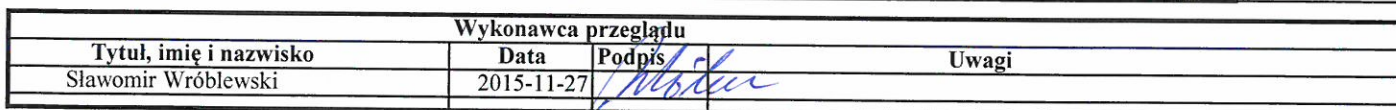 Wykonawca przeglądu
Tytuł, imię i nazwisko Data Podpis Uwagi
Sławomir Wróblewski 2015-11-27